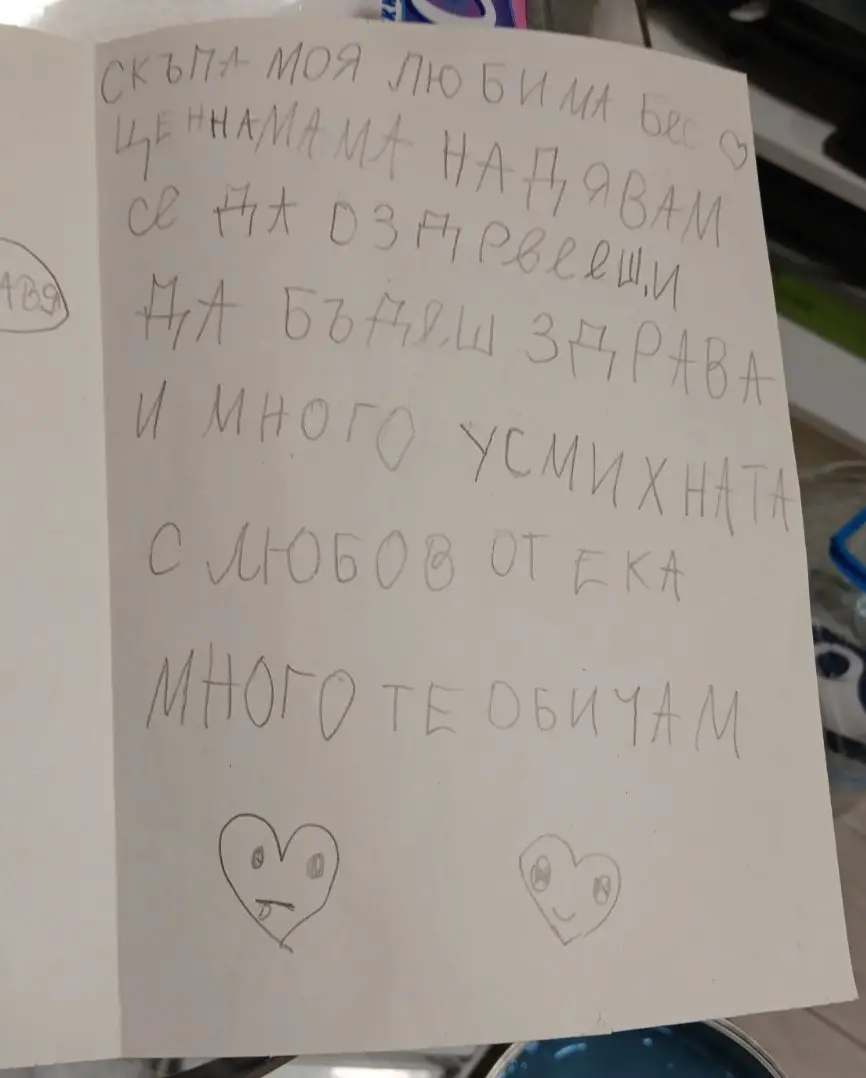 СКЪПА МОЯ ЛЮБИМА Бес
ЦЕННАМАМА НАДЯВАМ
се ДА ОЗДРвееш,И
ДА БЪДеШ ЗДРАВА
И МНОГО УСМИХНАТА
С ЛЮБОВ ОТ ЕКА
МНОГО ТЕ ОБИЧАМ